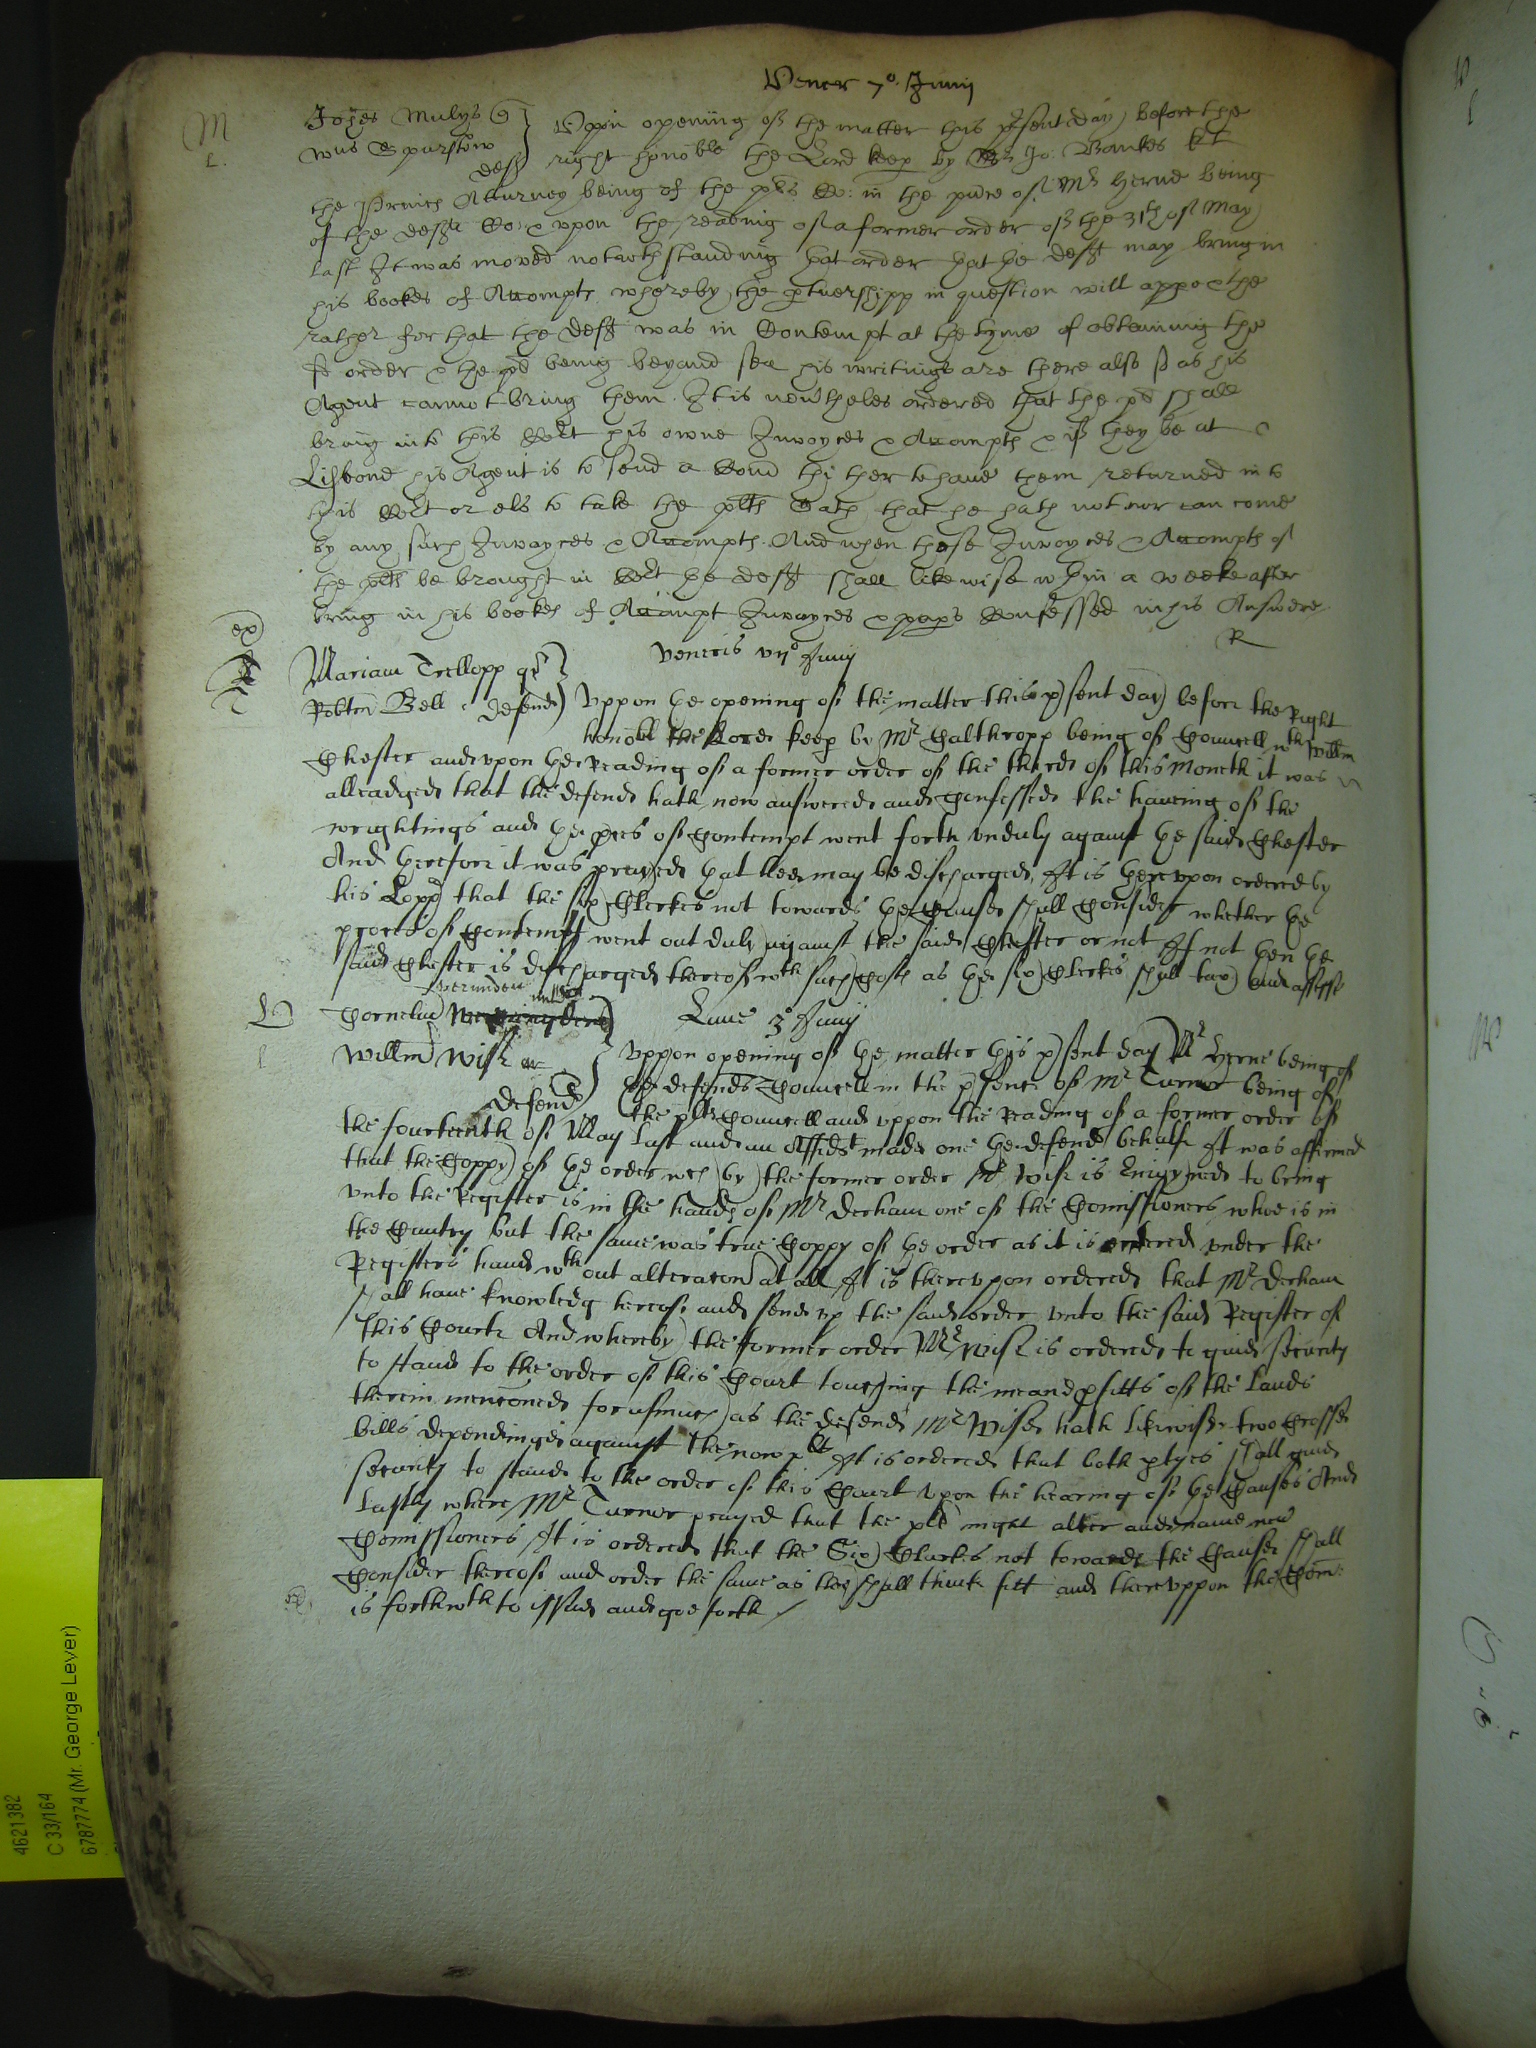 Vener 7o Junij
M
Johes Mulys q
Wus Spurstow
deft
Uppon opening of the matter this pr~sent day before the
right honoble the Lord keep by Sr Jo: Bankes kt
the Princes Atturney being of the plts Co: in the pnce of Mr Herne being
of the defts Co: & upon the reading of a former order of the 31th of May
last It was moved notwthstanding that order that the deft may bring in
his bookes of Accompts whereby the ptnershipp in question will appe & the
rather for that the deft was in Contempt at the tyme of obteining the
sd order & the plt being beyand sea his writings are there also so as his
Agent cannot bring them. It is nevtheles ordered that the plt shall
bring into this Cort his owne Invoyces & Accompts & if they be at
Lisbone his Agent is to send a Com thither to have them returned into
this Cort or els to take the plts Oath that he hath not nor can come
by any such Invoyces & Accompts. And when those Invoyces & Accompts of
the plts be brought in Cort the deft shall likewise wthin a weeke after
bring in his bookes of Accompt Invoyces & paps Confessed in his Answere
R
ex
Veneris vijo Junij
Mariam Trellopp qr
Robtm Bell defend
Uppon the opening of the matter this p~sent day before the Right
honobl the Lord keep by Mr Calthropp being of Councell wth Willm
Chester and upon the reading of a former order of the third of this moneth it was
alleadged that the defend hath now answered and confessed the haveing of the
wrightings and the pces of contempt went forth unduly against the said Chester
And therefore it was prayed that hee may be discharged, It is thereupon ordered by
his Lopp that the six Clerkes not towards the cause shall consider whether the
proces of contempt went out duly against the said Chester or not If not then the
said Chester is discharged thereof wth such costs as the six Clerkes shall tax and assesse
L
Cornelius Vermuden militem
Willm Wise ar
defend
Lune 3o Junij
Uppon opening of the matter this p~sent day Mr Herne being of
the defends Councell in the p~sence of Mr Turnor being of
the plts Councell and uppon the reading of a former order of
the fourteenth of May last and an Affidt made one the defends behalfe It was affirmed
that the Coppy of the order wch by the former order Mr Wise is Enioyned to bring
unto the Register is in the hands of Mr Derham one of the Comissioners whoe is in
the Cuntry but the same was true Coppy of the order as it is entered under the
Registers hand wthout alteracon at all It is thereupon ordered that Mr Derham
shall have knowledg hereof and send up the said order unto the said Register of
this Courte And whereby the former order Mr Wise is ordered to give security
to stand to the order of this Court touching the meane pfitts of the Lands
therein menconed forasmuch as the defend Mr Wise hath likewise two Crosse
bills dependinge against the now plt It is ordered that both ptyes shall give
security to stand to the order of this Court upon the hearing of the Causes And
Lastly where Mr Turnor prayed that the plt might alter and name new
Comissioners It is ordered that the Six Clarkes not towards the Cause shall
Consider thereof and order the same as they shall thinke fitt and thereuppon the Com:
is forthwth to issue and goe forth
4621382
C 33/164
6787774 (Mr. George Lever)